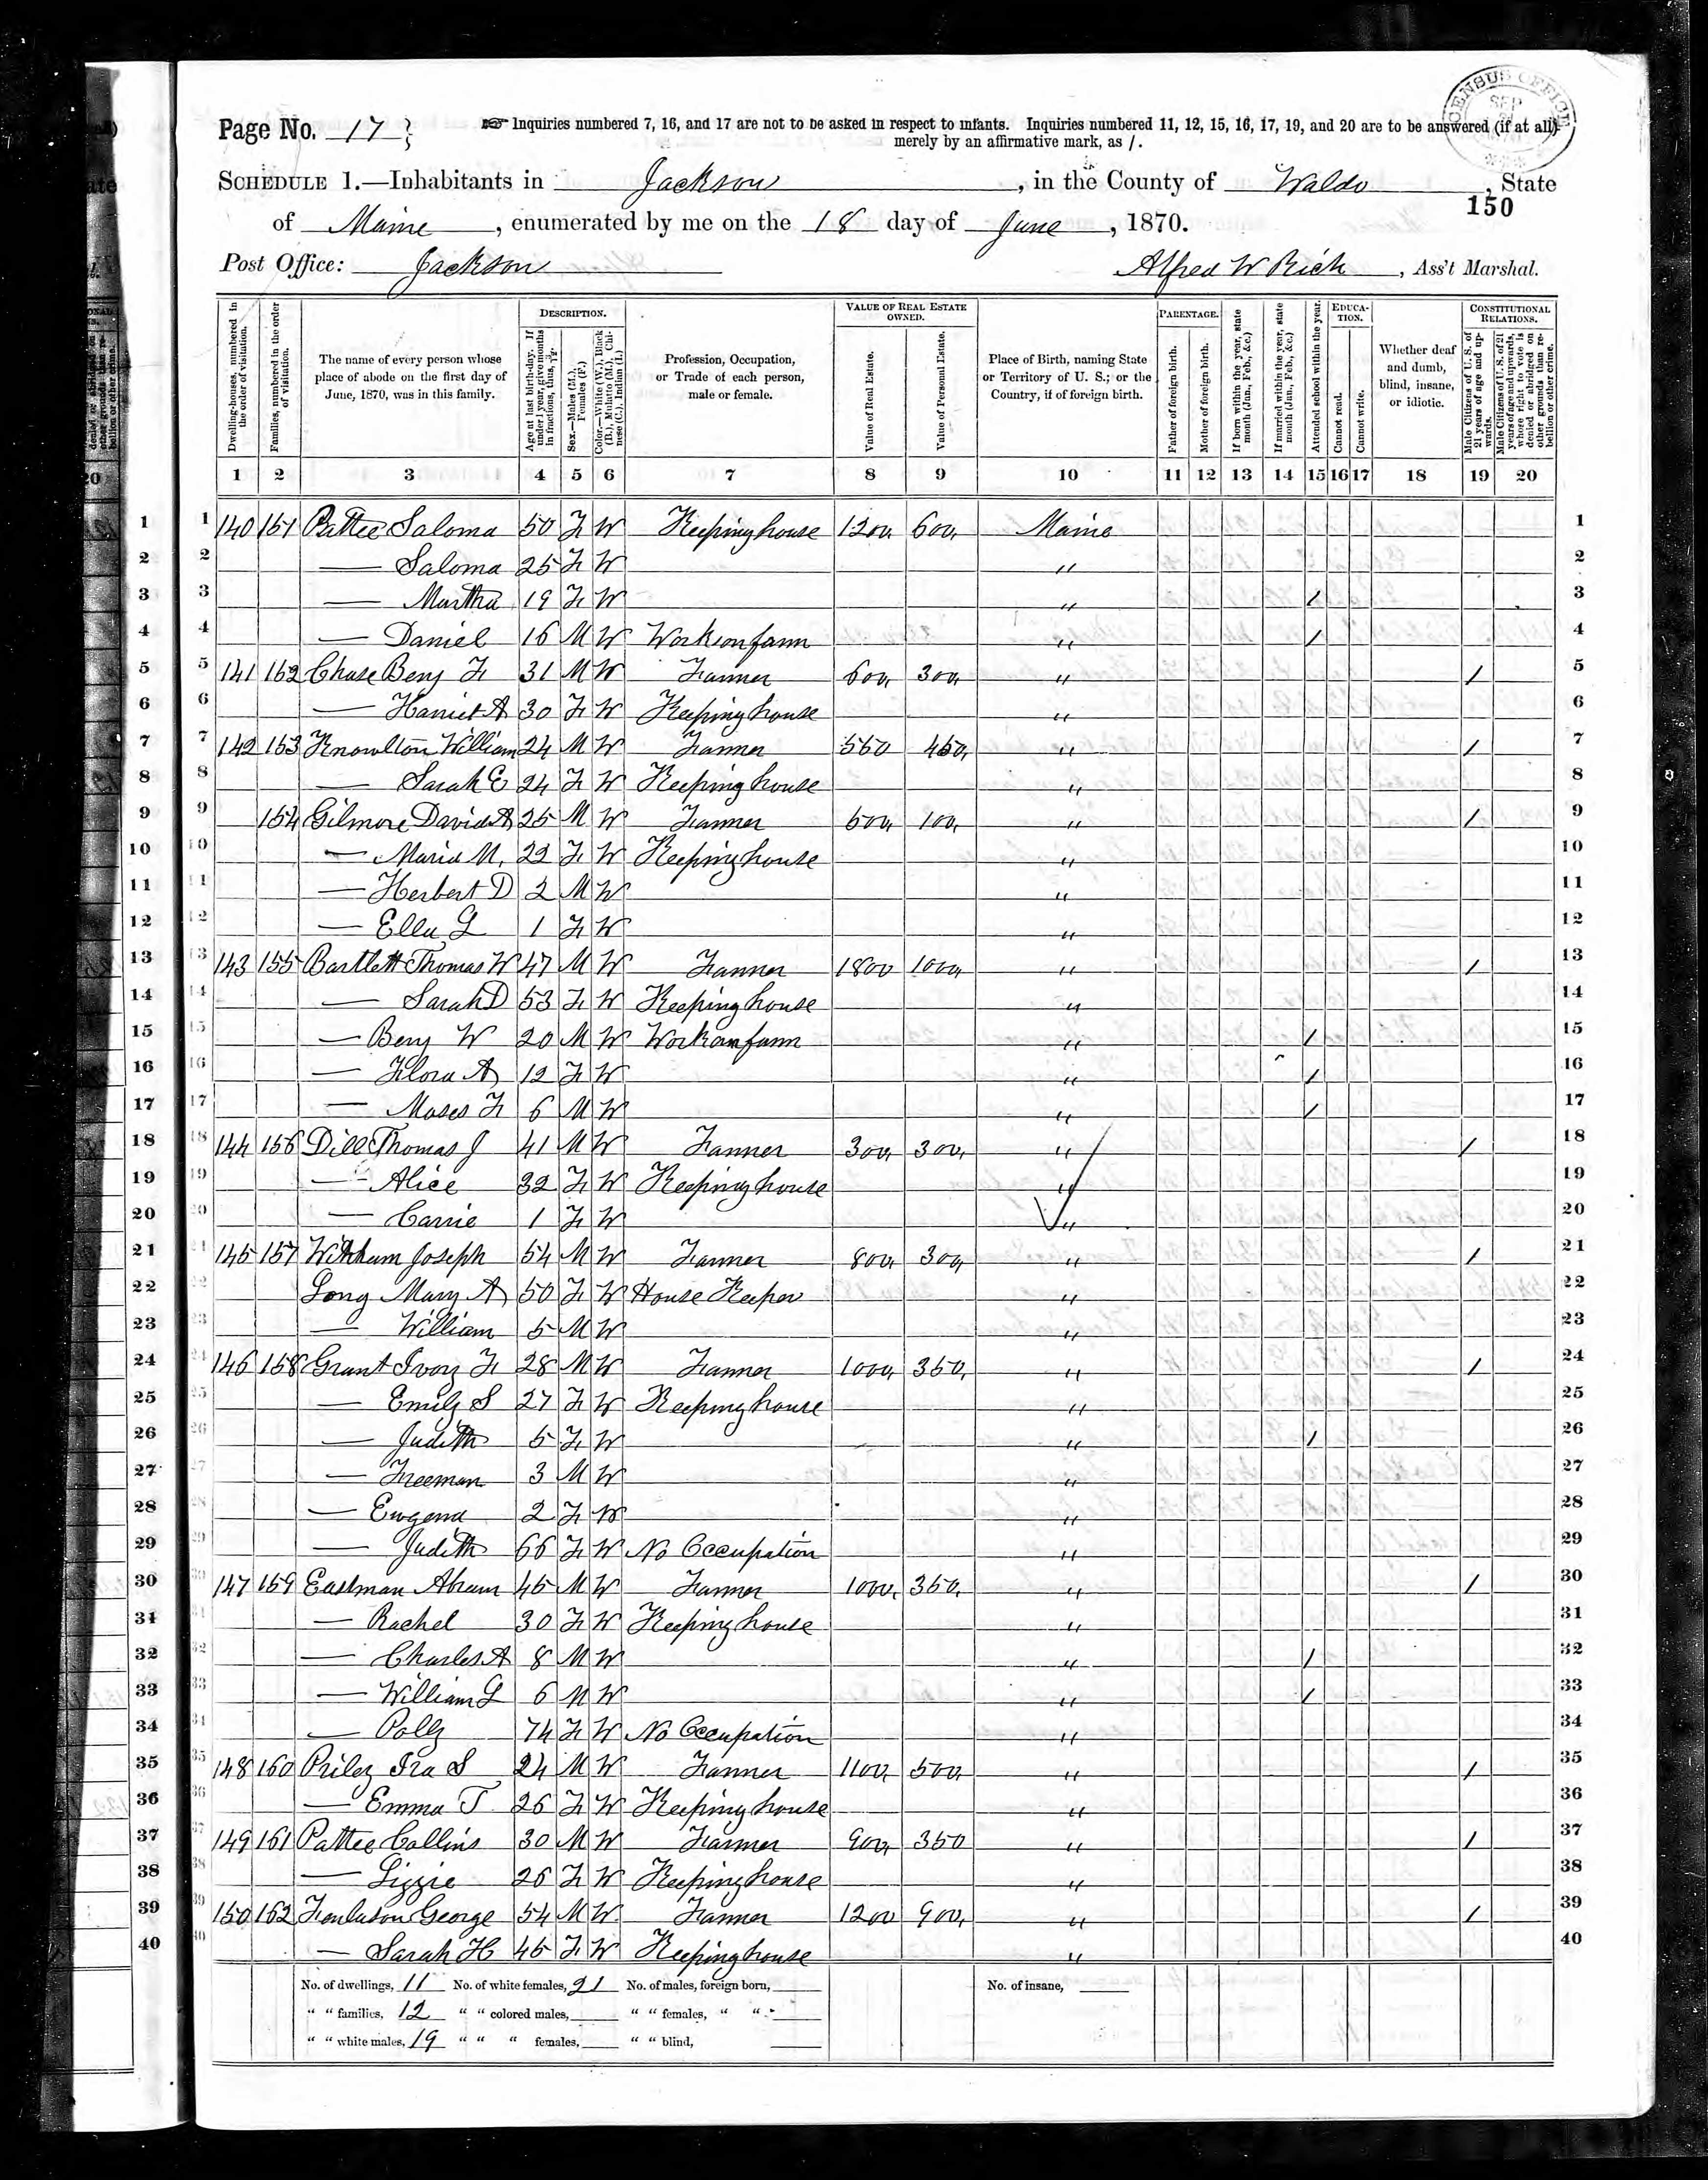 Page No. 17
Inquiries numbered 7, 16, and 17 are not to be asked in respect to infants. Inquiries numbered 11, 12, 15, 16, 17, 19, and 20 are to be answered (if at all)
merely by an affirmative mark, as /.
CENSUS OFFICE
SEP
SCHEDULE 1.—Inhabitants in Jackson, in the County of Waldo, State
150
of Maine, enumerated by me on the 18 day of June, 1870.
Post Office: Jackson Alfred W Rich, Ass't Marshal.
Dwelling-houses, numbered in the order of visitation.
Families, numbered in the order of visitation.
The name of every person whose place of abode on the first day of June, 1870, was in this family.
DESCRIPTION.
Age at last birth-day. If under 1 year, give months in fractions, thus, 3/12.
Sex.—Males (M.), Females (F.)
Color.—White (W.), Black (B.), Mulatto (M.), Chinese (C.), Indian (I.)
Profession, Occupation, or Trade of each person, male or female.
VALUE OF REAL ESTATE OWNED.
Value of Real Estate.
Value of Personal Estate.
Place of Birth, naming State or Territory of U. S.; or the Country, if of foreign birth.
PARENTAGE.
Father of foreign birth.
Mother of foreign birth.
If born within the year, state month (Jan., Feb., &c.)
If married within the year, state month (Jan., Feb., &c.)
Attended school within the year.
EDUCATION.
Cannot read.
Cannot write.
Whether deaf and dumb, blind, insane, or idiotic.
CONSTITUTIONAL RELATIONS.
Male Citizens of U. S. of 21 years of age and upwards.
Male Citizens of U. S. of 21 years of age and upwards, whose right to vote is denied or abridged on other grounds than rebellion or other crime.
1 2 3 4 5 6 7 8 9 10 11 12 13 14 15 16 17 18 19 20
1 140 151 Pattee Saloma 50 F W Keeping house 1200 600 Maine 1
2 — Saloma 25 F W " 2
3 — Martha 19 F W " / 3
4 — Daniel 16 M W Works on farm " / 4
5 141 152 Chase Benj F 31 M W Farmer 600 300 " / 5
6 — Harriet A 30 F W Keeping house " 6
7 142 153 Knowlton William 24 M W Farmer 550 450 " / 7
8 — Sarah E 24 F W Keeping house " 8
9 154 Gilmore David A 25 M W Farmer 600 100 " / 9
10 — Maria M. 22 F W Keeping house " 10
11 — Herbert D 2 M W " 11
12 — Ella L 1 F W " 12
13 143 155 Bartlett Thomas W 47 M W Farmer 1800 1000 " / 13
14 — Sarah D 53 F W Keeping house " 14
15 — Benj W 20 M W Work on farm " / 15
16 — Flora A 12 F W " / 16
17 — Moses F 6 M W " / 17
18 144 156 Dill Thomas J 41 M W Farmer 300 300 " / 18
19 — Alice 32 F W Keeping house " 19
20 — Carrie 1 F W " 20
21 145 157 Witham Joseph 54 M W Farmer 800 300 " / 21
22 Long Mary A 50 F W House Keeper " 22
23 — William 5 M W " 23
24 146 158 Grant Ivory F 28 M W Farmer 1000 350 " / 24
25 — Emily S 27 F W Keeping house " 25
26 — Judith 5 F W " / 26
27 — Freeman 3 M W " 27
28 — Eugena 2 F W " 28
29 — Judith 66 F W No Occupation " 29
30 147 159 Eastman Abram 45 M W Farmer 1000 350 " / 30
31 — Rachel 30 F W Keeping house " 31
32 — Charles A 8 M W " / 32
33 — William L 6 M W " / 33
34 — Polly 74 F W No Occupation " 34
35 148 160 Priley Ira S 24 M W Farmer 1100 500 " / 35
36 — Emma T 26 F W Keeping house " 36
37 149 161 Pattee Collins 30 M W Farmer 900 350 " / 37
38 — Lizzie 26 F W Keeping house " 38
39 150 162 George 54 M W Farmer 1200 900 " / 39
40 — Sarah H 45 F W Keeping house " 40
No. of dwellings, 11 No. of white females, 21 No. of males, foreign born, No. of insane,
" " families, 12 " " colored males, " " females, " "
" " white males, 19 " " " females, " " blind,